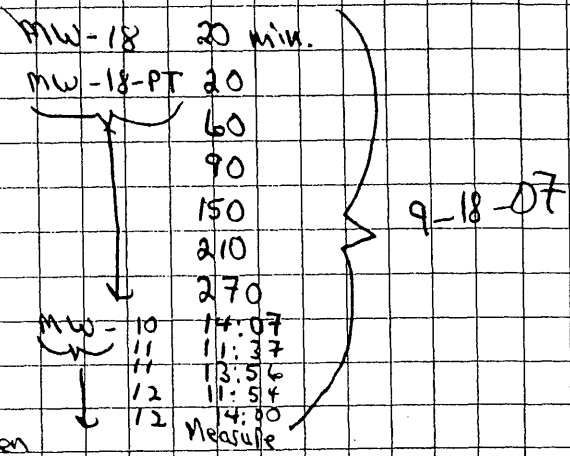 MW-18 20 min.
MW-18-PT 20
60
90
150
210
270
9-18-07
MW-10 14:07
11 11:37
11 13:56
12 11:54
12 14:00
Measure
en